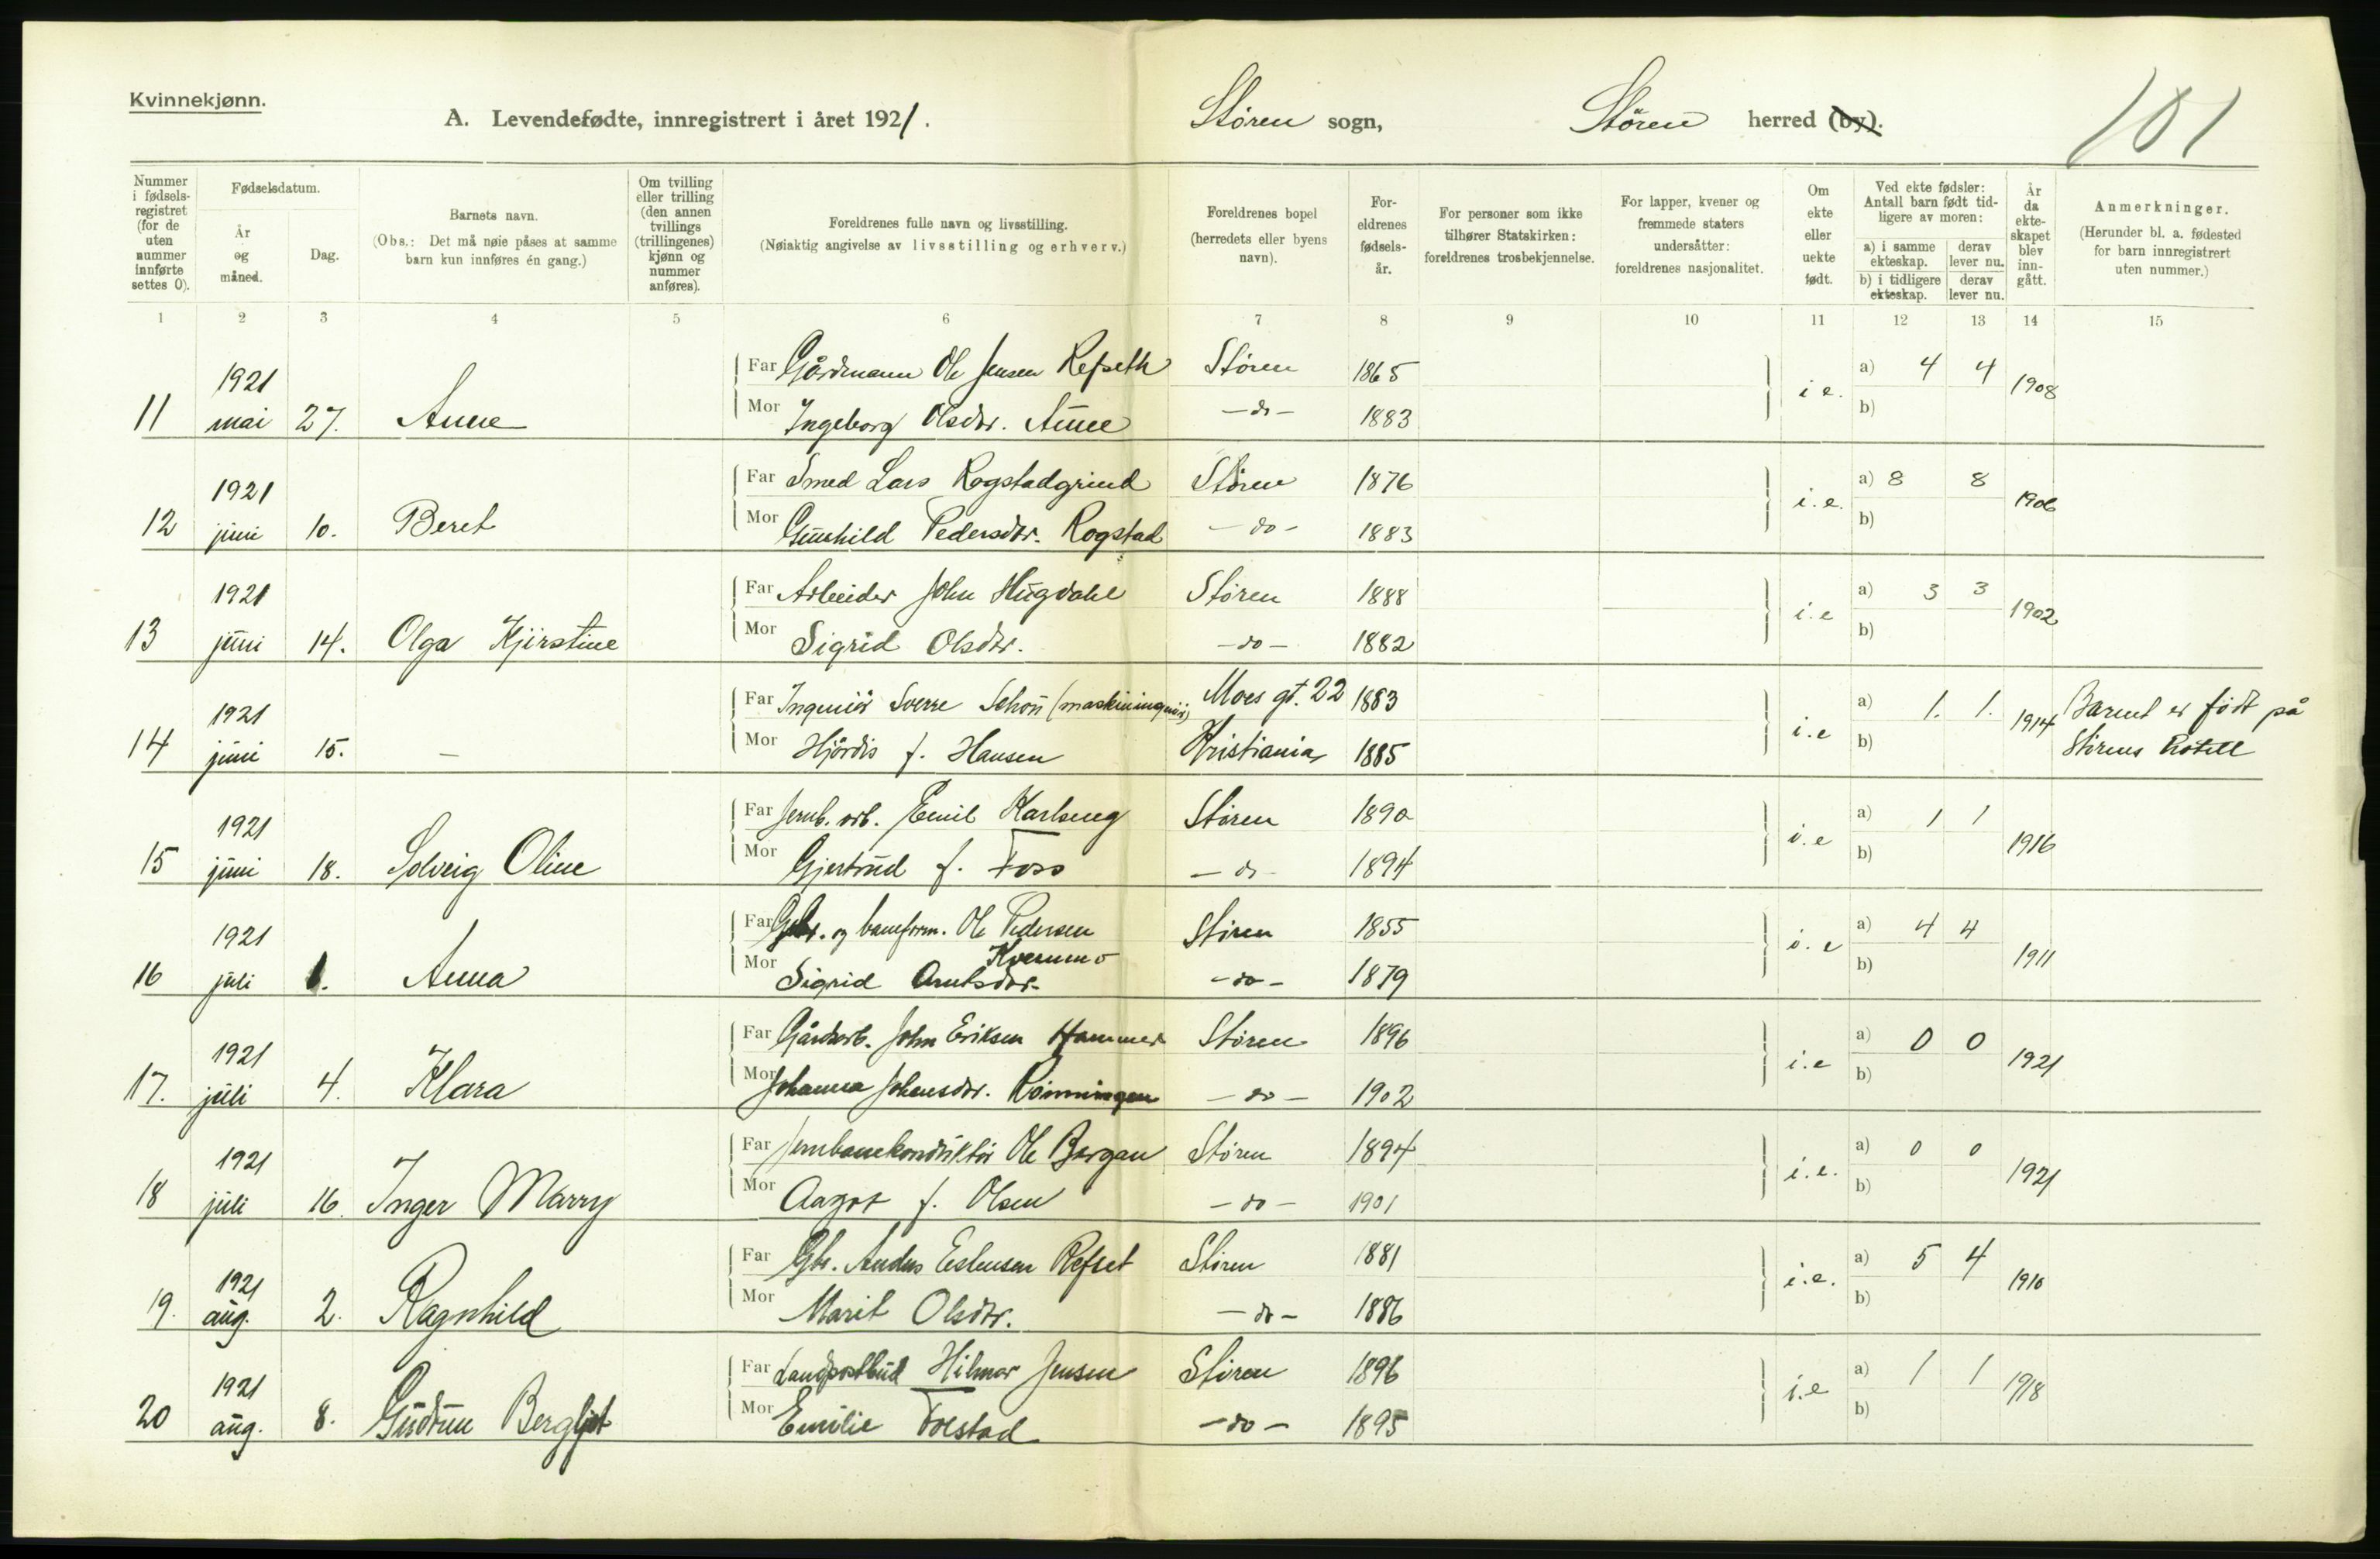 Kvinnekjønn.
A. Levendefødte, innregistrert i året 1921. Støren sogn, Støren herred (by). 101
Nummer i fødsels-registret (for de uten nummer innførte settes 0).
Fødselsdatum.
År og måned.
Dag.
Barnets navn.
(Obs.: Det må nøie påses at samme barn kun innføres én gang.)
Om tvilling eller trilling (den annen tvillings (trillingenes) kjønn og nummer anføres).
Foreldrenes fulle navn og livsstilling.
(Nøiaktig angivelse av livsstilling og erhverv.)
Foreldrenes bopel (herredets eller byens navn).
For-eldrenes fødsels-år.
For personer som ikke tilhører Statskirken: foreldrenes trosbekjennelse.
For lapper, kvener og fremmede staters undersåtter: foreldrenes nasjonalitet.
Om ekte eller uekte født.
Ved ekte fødsler: Antall barn født tid-ligere av moren:
a) i samme ekteskap. derav lever nu.
b) i tidligere ekteskap. derav lever nu.
År da ekte-skapet blev inn-gått.
Anmerkninger.
(Herunder bl. a. fødested for barn innregistrert uten nummer.)
1 2 3 4 5 6 7 8 9 10 11 12 13 14 15
1921 Far Gårdmann Ole Jensen Refseth Støren 1865 i e. a) 4 4 1908
11 mai 27. Anne Mor Ingeborg Olsdr. Aune -do- 1883 b)
1921 Far Smed Lars Rogstadgrind Støren 1876 i. e. a) 8 8 1906
12 juni 10. Beret Mor Gunhild Pedersdtr. Rogstad -do- 1883 b)
1921 Far Arbeider John Hugdahl Støren 1888 i. e a) 3 3 1902
13 juni 14. Olga Kjirstine Mor Sigrid Olsdtr. -do- 1882 b)
1921 Far Ingeniør Sverre Schou (maskiningeniør) Moes gt. 22 1883 i. e a) 1. 1. 1914 Barnet er født på
14 juni 15. - Mor Hjørdis f. Hansen Kristiania 1885 b) Størens Hotell
1921 Far Jernb. arb. Emil Karlseng Støren 1890 i. e a) 1 1 1916
15 juni 18. Solveig Oline Mor Gjertrud f. Foss -do- 1894 b)
1921 Far Gbr. og baneform. Ole Pedersen Støren 1855 i. e a) 4 4 1911
Kvernmo
16 juli 1. Anna Mor Sigrid Arntsdtr. -do- 1879 b)
1921 Far Gårdsarb. John Eriksen Hammer Støren 1896 i. e a) 0 0 1921
17. juli 4. Klara Mor Johanna Johensdtr. Rønningen -do- 1902 b)
1921 Far Jernbanekonduktør Ole Bergan Støren 1894 i. e. a) 0 0 1921
18 juli 16. Inger Marry Mor Aagot f. Olsen -do- 1901 b)
1921 Far Gbr. Anders Estensen Refset Støren 1881 i. e. a) 5 4 1910
19. aug. 2. Ragnhild Mor Marit Olsdtr. -do- 1886 b)
1921 Far Landpostbud Hilmar Jensen Støren 1896 i. e a) 1 1 1918
20 aug. 8. Gudrun Bergljot Mor Emilie Folstad -do- 1895 b)